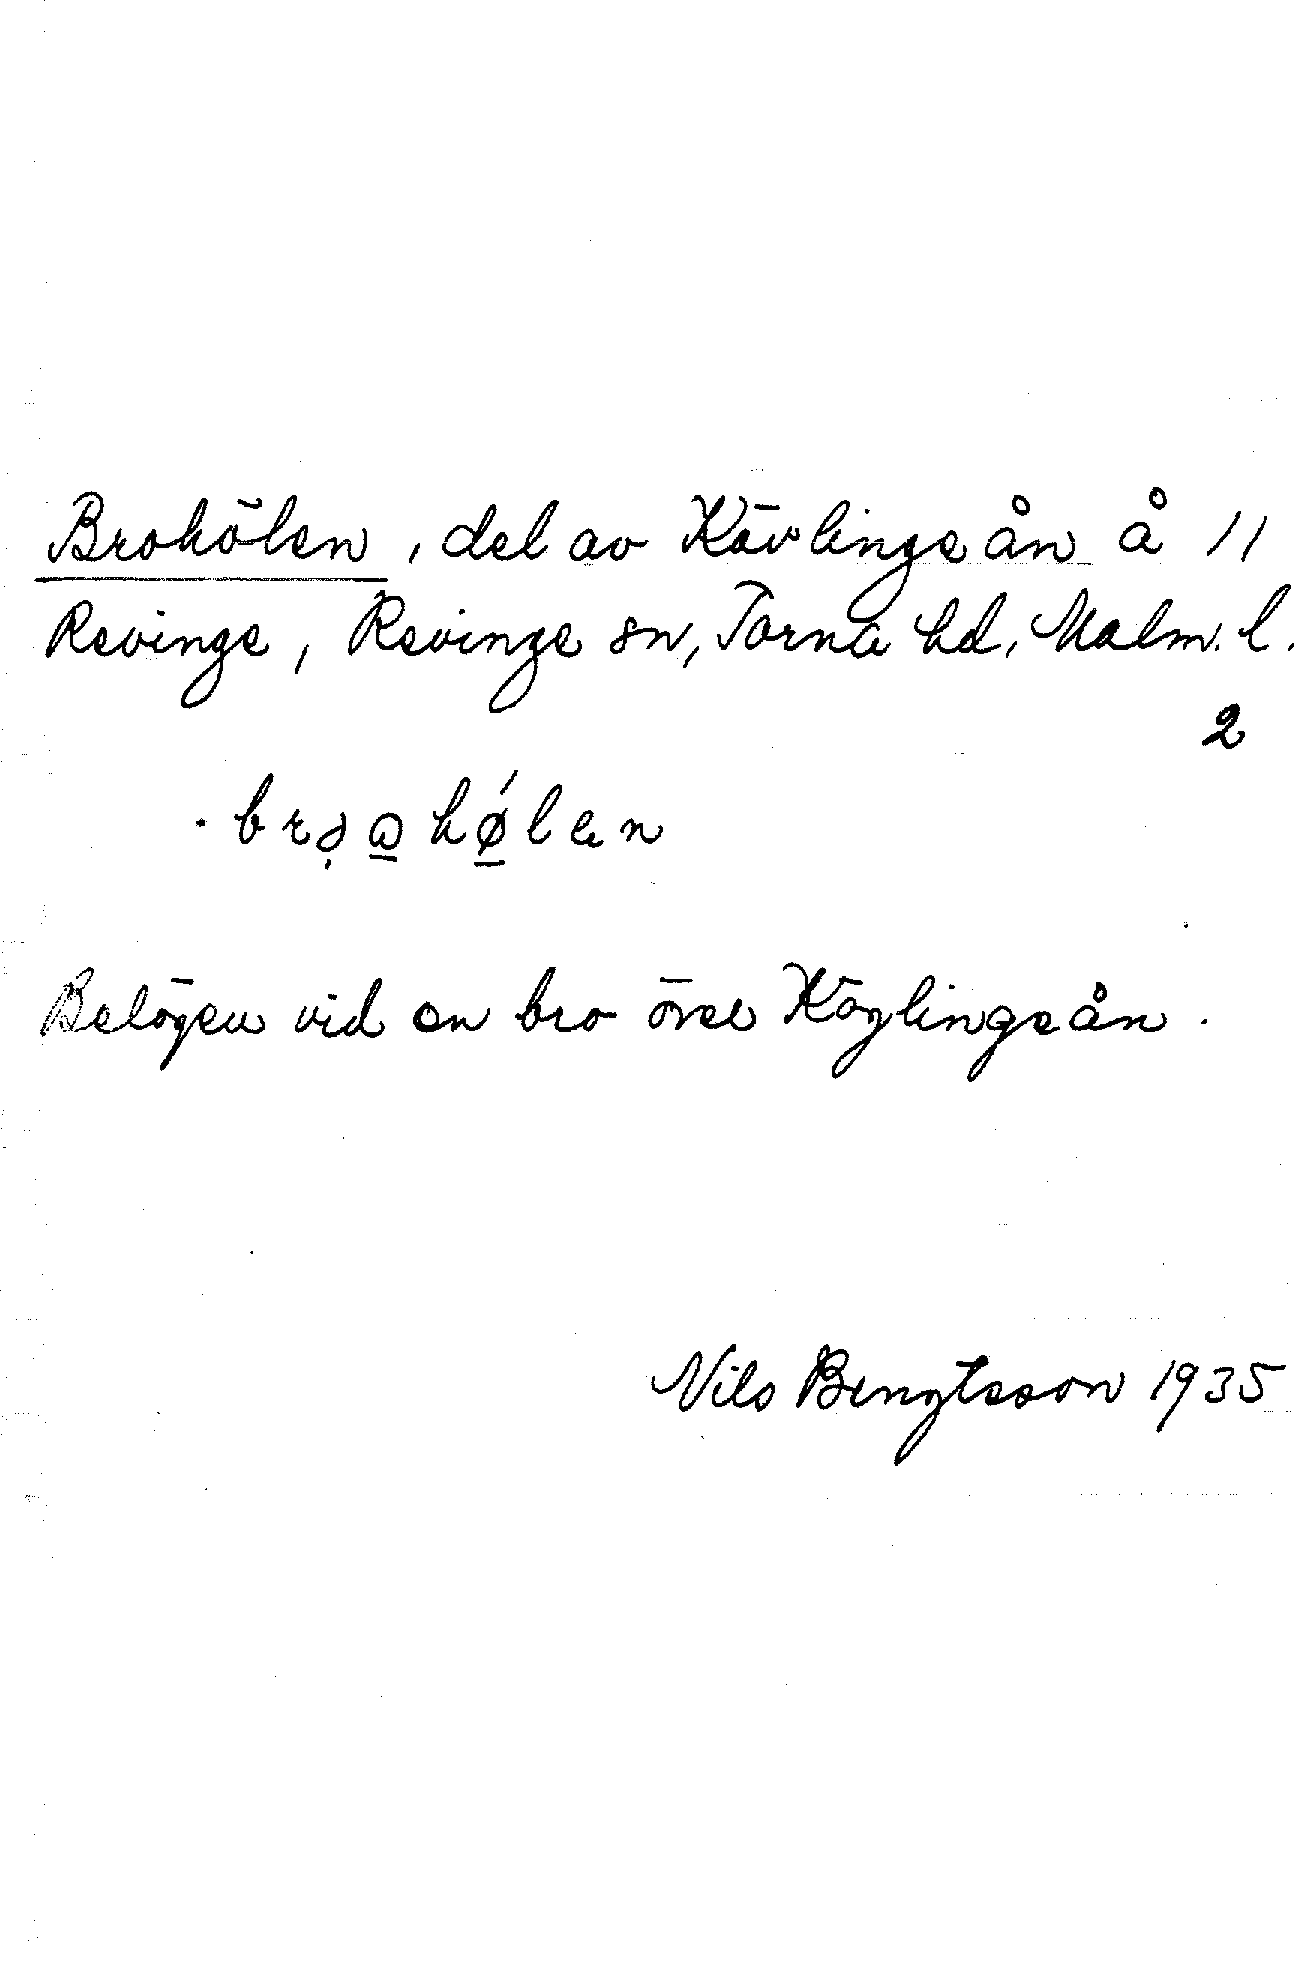 Brohölen, del av Kävlingeån å 11
Revinge, Revinge sn, Torna hd, Malm. l.
2
hǿ̲len
Belägen vid en bro över Kävlingeån.
Nils Bengtsson 1935